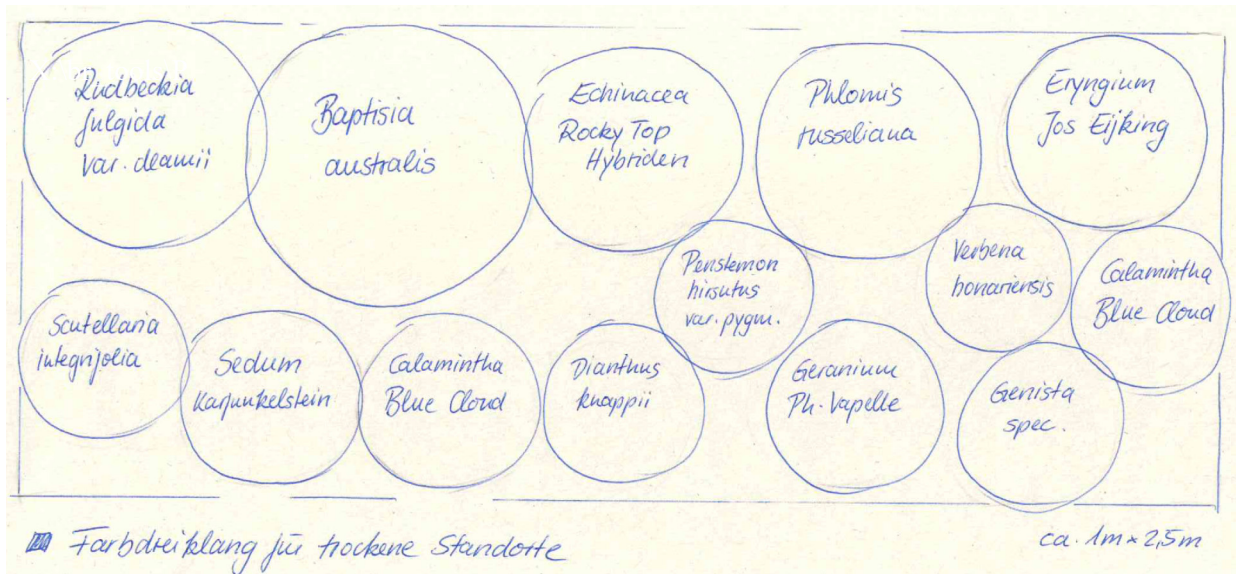 Rudbeckia
fulgida
var. deamii
Baptisia
australis
Echinacea
Rocky Top
Hybriden
Phlomis
russeliana
Eryngium
Jos Eijking
Penstemon
hirsutus
var. pygm.
Verbena
bonariensis
Calamintha
Blue Cloud
Scutellaria
integrifolia
Sedum
Karfunkelstein
Calamintha
Blue Cloud
Dianthus
knappii
Geranium
Ph. Vapelle
Genista
spec.
Farbdreiklang für trockene Standorte
ca. 1m × 2,5m